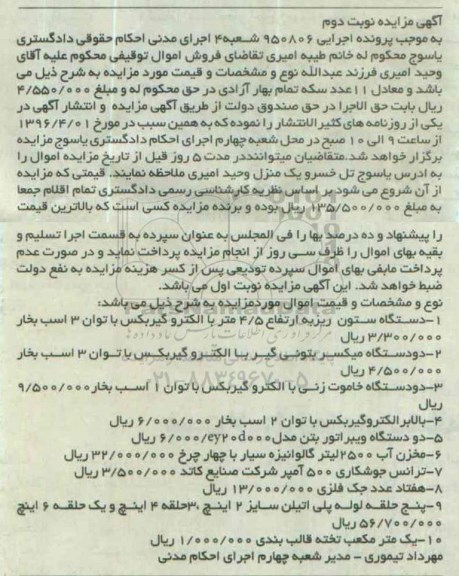 آگهی مزایده نوبت دوم
به موجب پرونده اجرایی ۹۵۰۸۰۶ شعبه۴ اجرای مدنی احکام حقوقی دادگستری
یاسوج محکوم له خانم طیبه امیری تقاضای فروش اموال توقیفی محکوم علیه آقای
وحید امیری فرزند عبدالله نوع و مشخصات و قیمت مورد مزایده به شرح ذیل می
باشد و معادل ۱۱عدد سکه تمام بهار آزادی در حق محکوم له و مبلغ ۴/۵۵۰/۰۰۰
ریال بابت حق الاجرا در حق صندوق دولت از طریق آگهی مزایده و انتشار آگهی در
یکی از روزنامه های کثیر الانتشار را نموده که به همین سبب در مورخ ۱۳۹۶/۴/۰۱
از ساعت ۹ الی ۱۰ صبح در محل شعبه چهارم اجرای احکام دادگستری یاسوج مزایده
برگزار خواهد شد.متقاضیان میتواننددر مدت ۵ روز قبل از تاریخ مزایده اموال را
به ادرس یاسوج تل خسرو یک منزل وحید امیری ملاحظه نمایند. قیمتی که مزایده
از آن شروع می شود بر اساس نظریه کارشناسی رسمی دادگستری تمام اقلام جمعا
به مبلغ ۱۳۵/۵۰۰/۰۰۰ ریال بوده و برنده مزایده کسی است که بالاترین قیمت
را پیشنهاد و ده درصد بها را فی المجلس به عنوان سپرده به قسمت اجرا تسلیم و
بقیه بهای اموال را ظرف سی روز از انجام مزایده پرداخت نماید و در صورت عدم
پرداخت مابقی بهای اموال سپرده تودیعی پس از کسر هزینه مزایده به نفع دولت
ضبط خواهد شد. این آگهی مزایده نوبت اول می باشد.
نوع و مشخصات و قیمت اموال موردمزایده به شرح ذیل می باشد:
۱-دستگاه ستون ریزیه ارتفاع ۴/۵ متر با الکترو گیربکس با توان ۳ اسب بخار
۳/۳۰۰/۰۰۰ ریال
۲-دودستگاه میکسر بتونی گیر با الکترو گیربکس با توان ۳ اسب بخار
۴/۵۰۰/۰۰۰ ریال
۳-دودستگاه خاموت زنی با الکترو گیربکس با توان ۱ اسب بخار۹/۵۰۰/۰۰۰
ریال
۴-بالابرالکتروگیربکس با توان ۲ اسب بخار ۶/۰۰۰/۰۰۰ ریال
۵-دو دستگاه ویبراتور بتن مدل ey۲۰d۰۰۰/۶/۰۰۰ ریال
۶-مخزن آب ۲۵۰۰لیتر گالوانیزه سیار با چهار چرخ ۳۲/۰۰۰/۰۰۰ ریال
۷-ترانس جوشکاری ۵۰۰ آمپر شرکت صنایع کاتد ۳/۵۰۰/۰۰۰ ریال
۸-هفتاد عدد جک فلزی ۱۳/۰۰۰/۰۰۰ ریال
۹-پنج حلقه لوله پلی اتیلن سایز ۲ اینچ ،۳حلقه ۴ اینچ و یک حلقه ۶ اینچ
۵۶/۷۰۰/۰۰۰ ریال
۱۰-یک متر مکعب تخته قالب بندی ۱/۰۰۰/۰۰۰ ریال
مهرداد تیموری - مدیر شعبه چهارم اجرای احکام مدنی